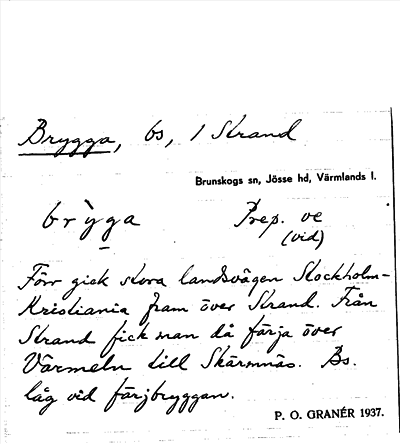 Brygga, bs, 1 Strand
Brunskogs sn, Jösse hd, Värmlands l.
brỳga Prep. ve
(vid)
Förr gick stora landsvägen Stockholm-
Kristiania fram över Strand. Från
Strand fick man då färja över
Värmeln till Skärmnäs. Bs.
låg vid färjbryggan.
P. O. GRANÉR 1937.